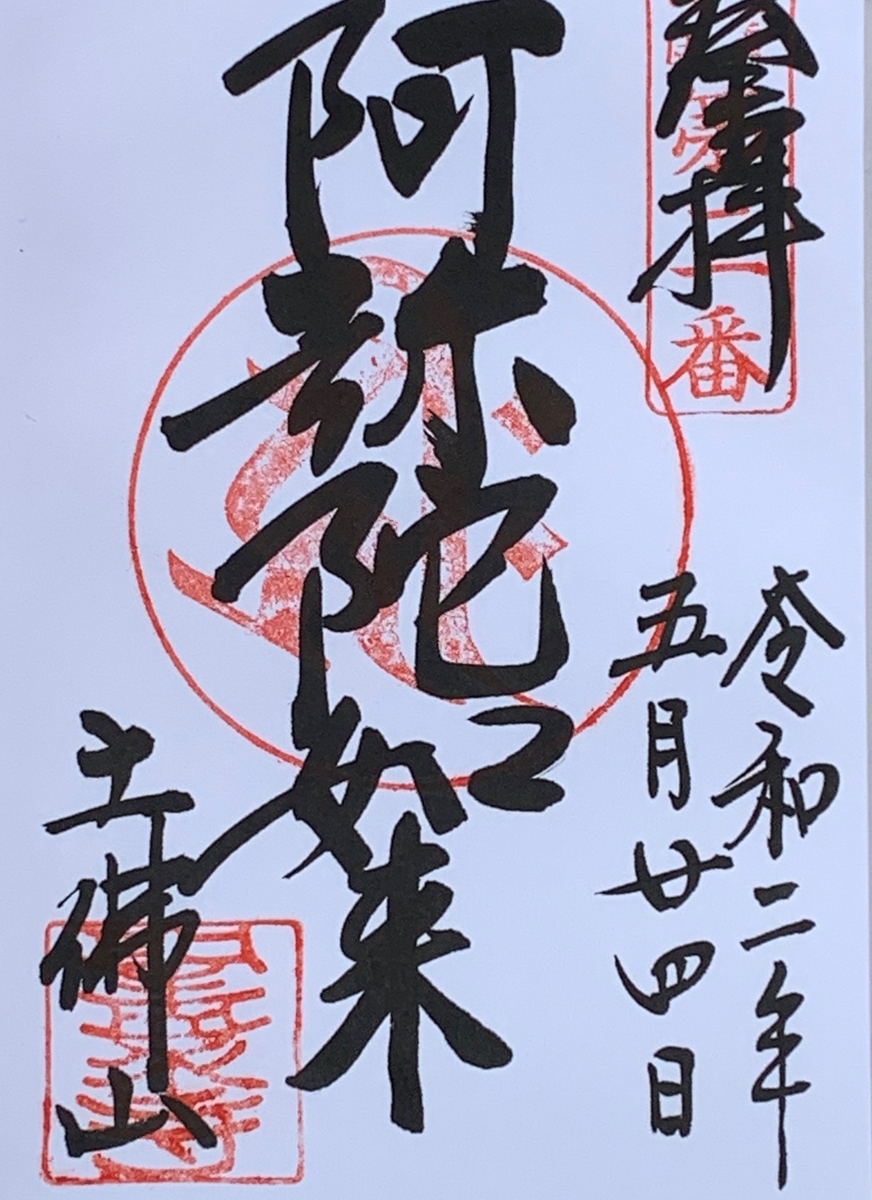 拝
番
令和二年
五月廿四日
阿弥陀如来
土佛山